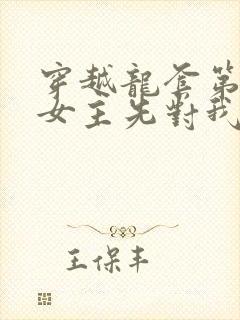 穿越龍套第
女主先對我
王保丰